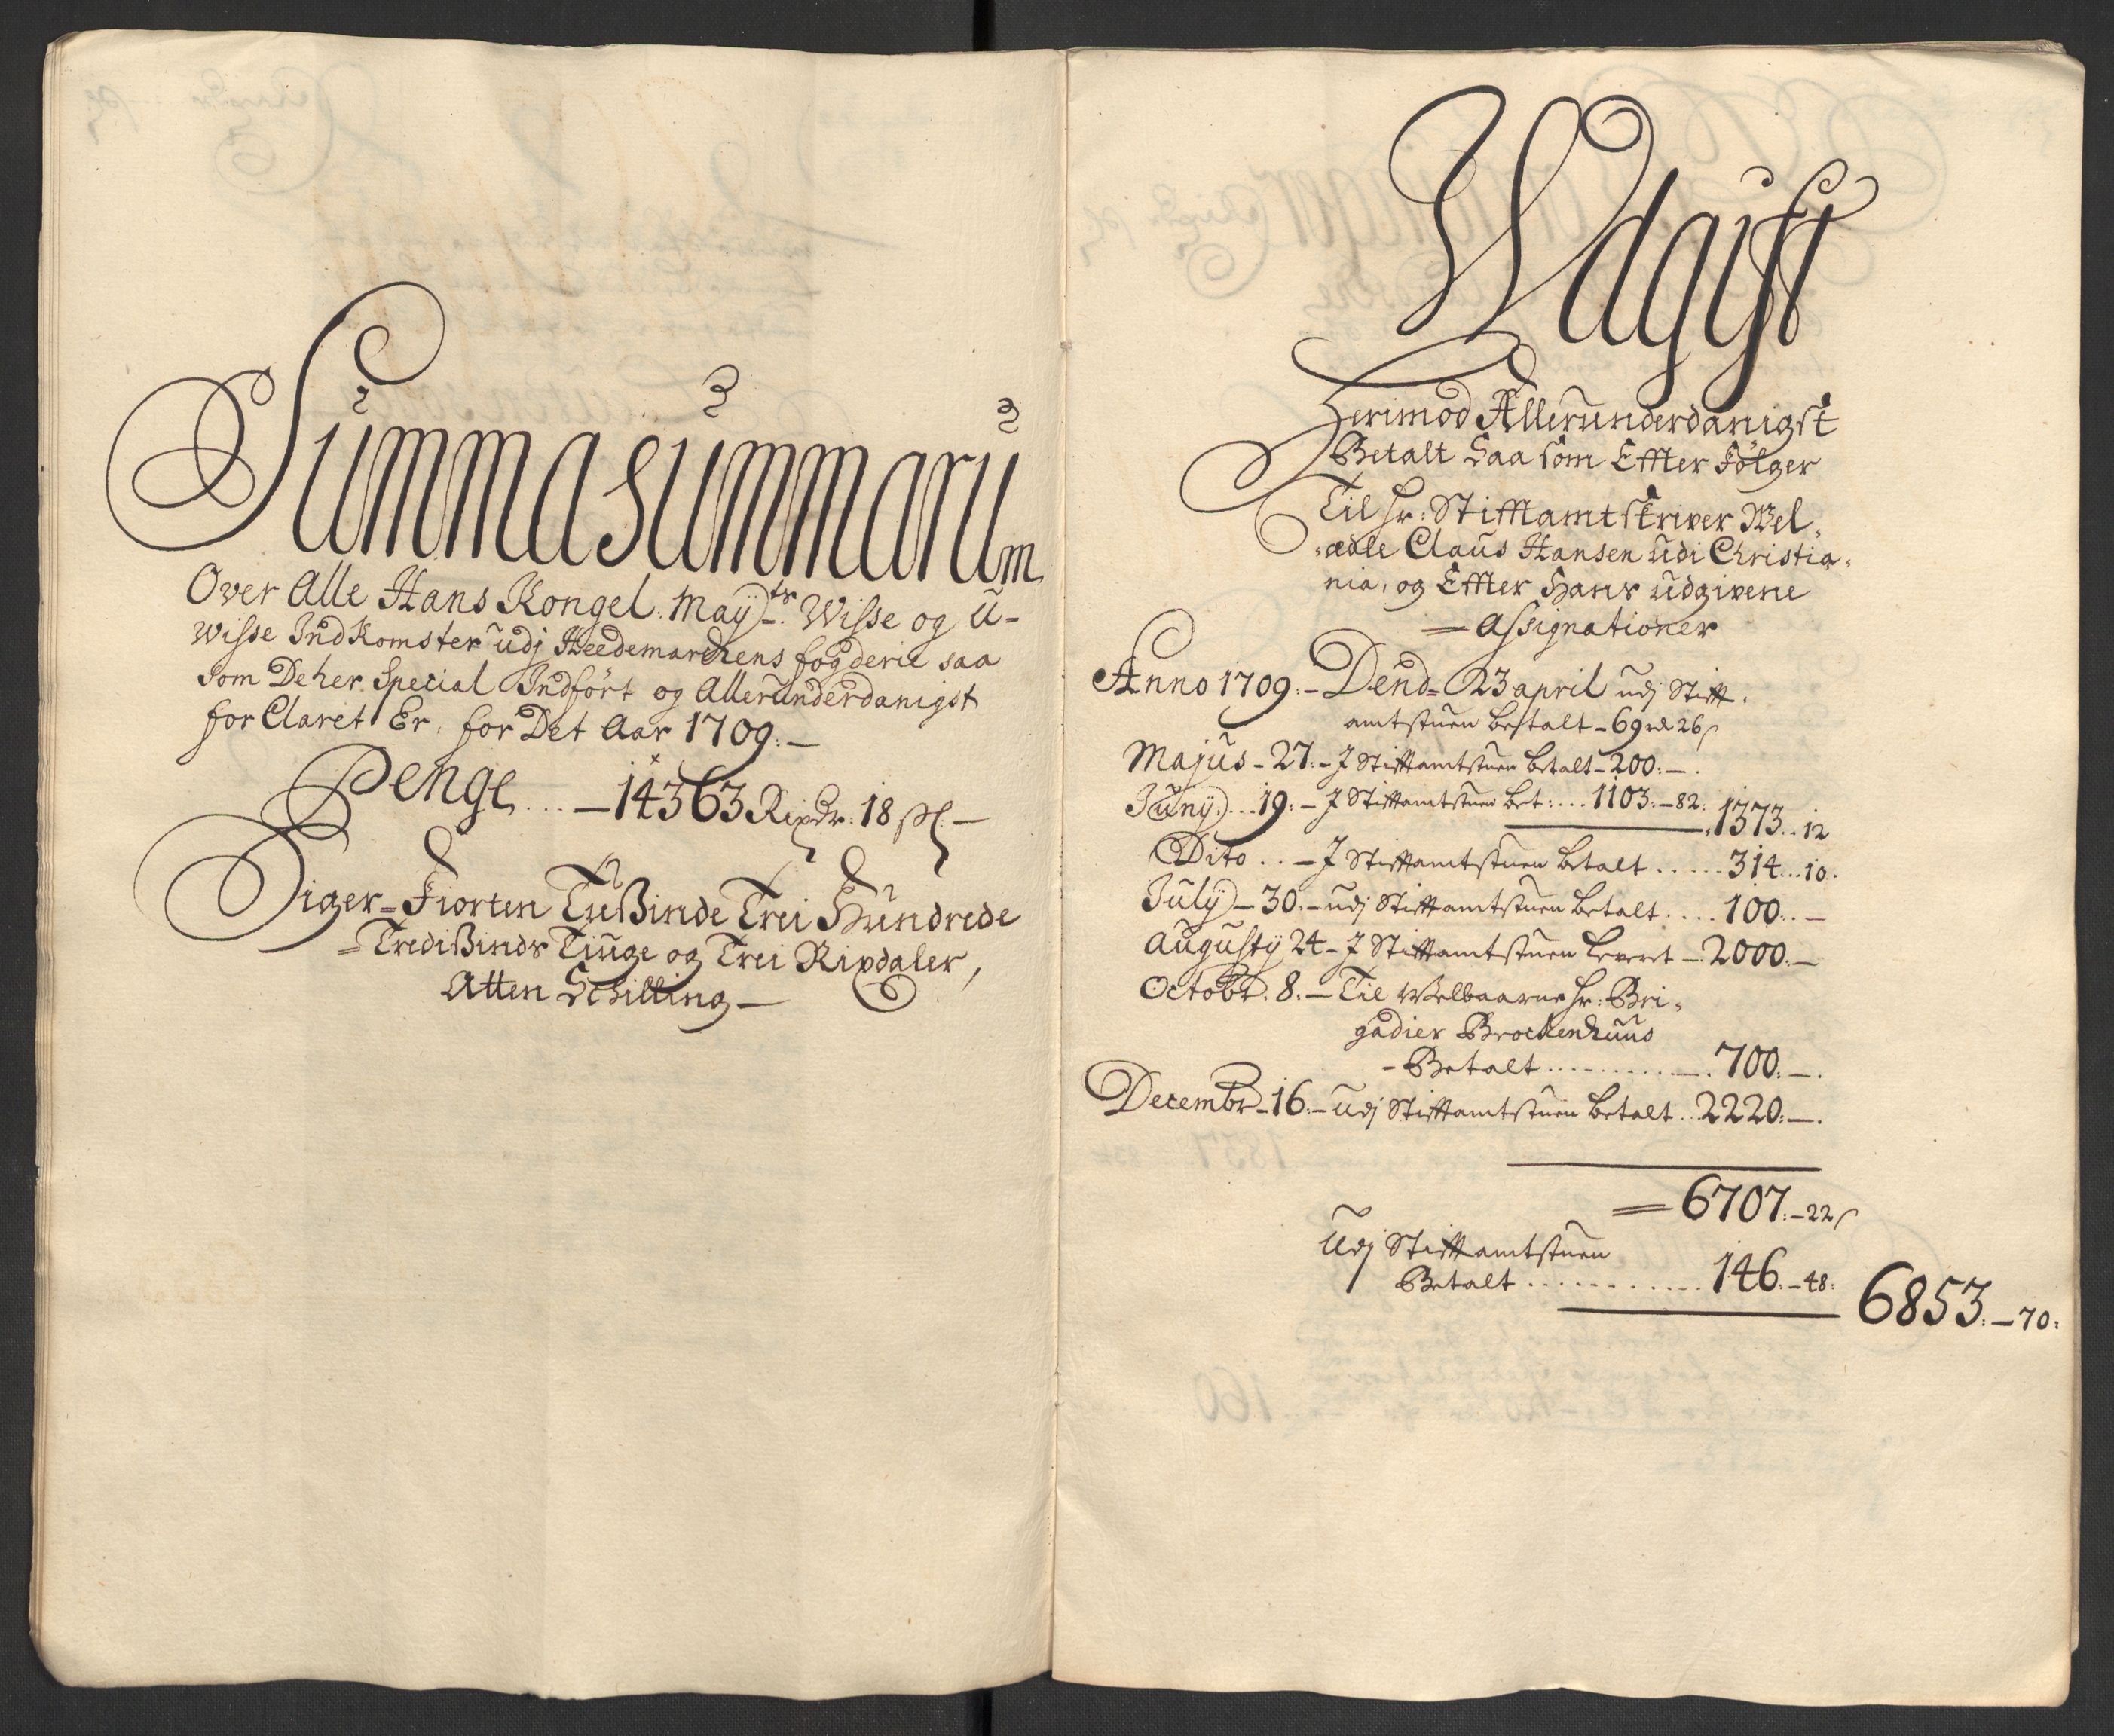 Summa Summarum
Over Alle Hans Kongel: Mayts: Wisse og U-
wisse Indkomster udj Heedemarckens fogderie saa
som De her Special Indført og Allerunderdanigst
for Claret Er, for Det Aar 1709:-
Penge .... - 14363 Rixdr: 18 sh: -
Siger = Fiorten Tußinde Trei Hundrede
= Tredißinds Tiuge og Trei Rixdaler,
Atten Schilling -
Udgift
Herimod Allerunderdanigst
Betalt Saa som Effter Følger
Til Hr: Stifftamtskriver Wel-
-ædle Claus Hansen udi Christia-
nia, og Effter Hans udgivene
= Assignationer
Anno 1709:- Dend= 23 april udj Stifft-
amtstuen bestalt - 69 rd 26 s
Majus - 27:- J Stifftamtstuen betalt - 200:-.
Juny ... 19:- J Stifftamtstuen bet: ... 1103:-82:
1373..12
Dito .. - J Stifftamtstuen betalt ..... 314..10.
July - 30:- udj Stifftamtstuen betalt .... 100..-
Augusty 24 - J Stifftamtstuen leveret - 2000.-
Octobr. 8:- Til Welbaarne Hr: Bri-
gadier Brockenhuus
- Betalt .......... 700.-.
Decembr - 16:- Udj Stifftamtstuen betalt .. 2220:-.
= 6707:-22 s
Udj Stifftamtstuen
Betalt ........... 146.-48:
6853:-70: